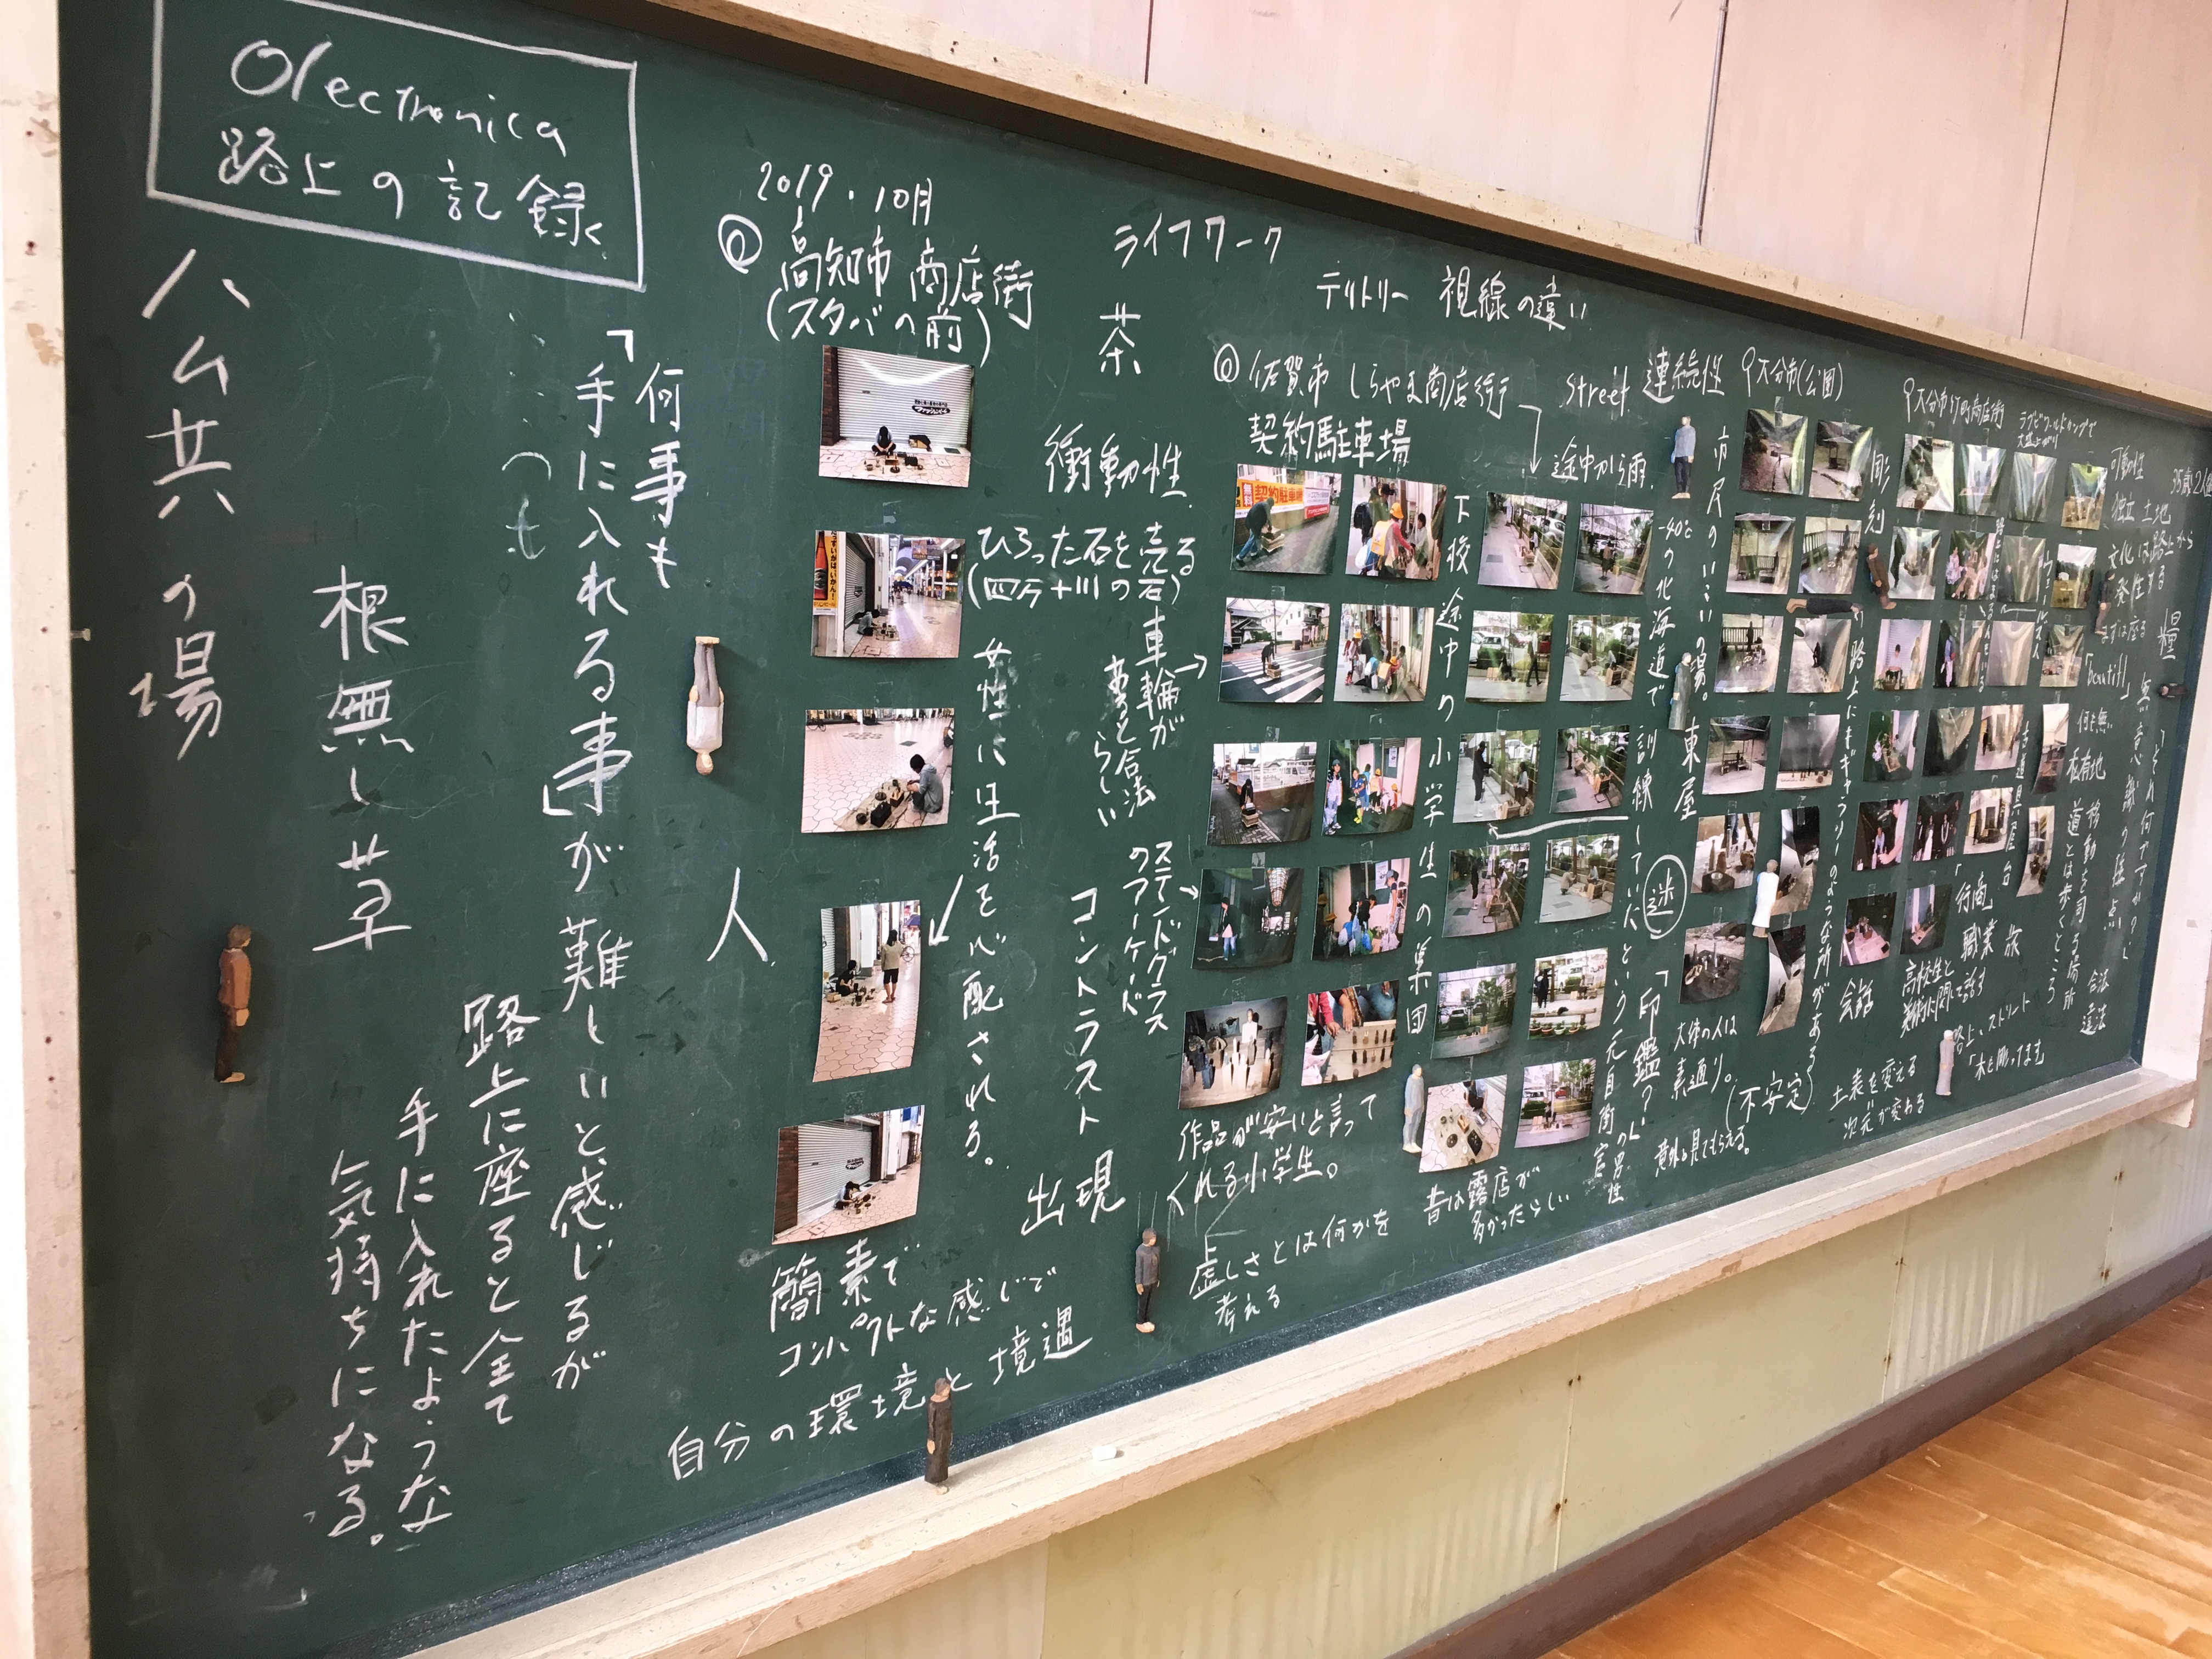 Olectronica
路上の記録
公共の場
根無し草
何事も
「手に入れる事」が難しいと感じるが
路上に座ると全て
手に入れたような
気持ちになる。
人
2019.10月
◎高知市 商店街
(スタバの前)
簡素で
コンパクトな感じで
自分の環境と境遇
ライフワーク
茶
衝動性
ひろった石を売る
(四万十川の石)
女性に生活を心配される。
車輪が
あると合法
らしい
ステンドグラス
のアーケード
コントラスト
出現
テリトリー 視線の違い
◎佐賀市 しらやま商店街
契約駐車場
street 連続性
途中から雨
下校途中の小学生の集団
作品が安いと言って
くれる小学生。
虚しさとは何かを
考える
昔は露店が
多かったらしい
-40℃の北海道で訓練していたという元自衛官の男性
「印鑑?」
市民のいこいの場。東屋
迷
大分市(公園)
彫刻
大体の人は
素通り。
(不安定)
意外と見てもらえる。
路上にもギャラリーのような所がある
大分市
商店街
ラグビーワールドカップで
大盛上がり
古道具屋台
「行商」
職業 旅
会話
高校生と
美術に関して話す
土表を変える
次元が変わる
路上、ストリート
「木も彫ってます」
可動性
独立 土地
文化は路上から
発生する
まずは座る
何も無い
私有地
移動を司る場所
道とは歩くところ
合法
違法
糧
無意識の採点
「それ何ですか?」